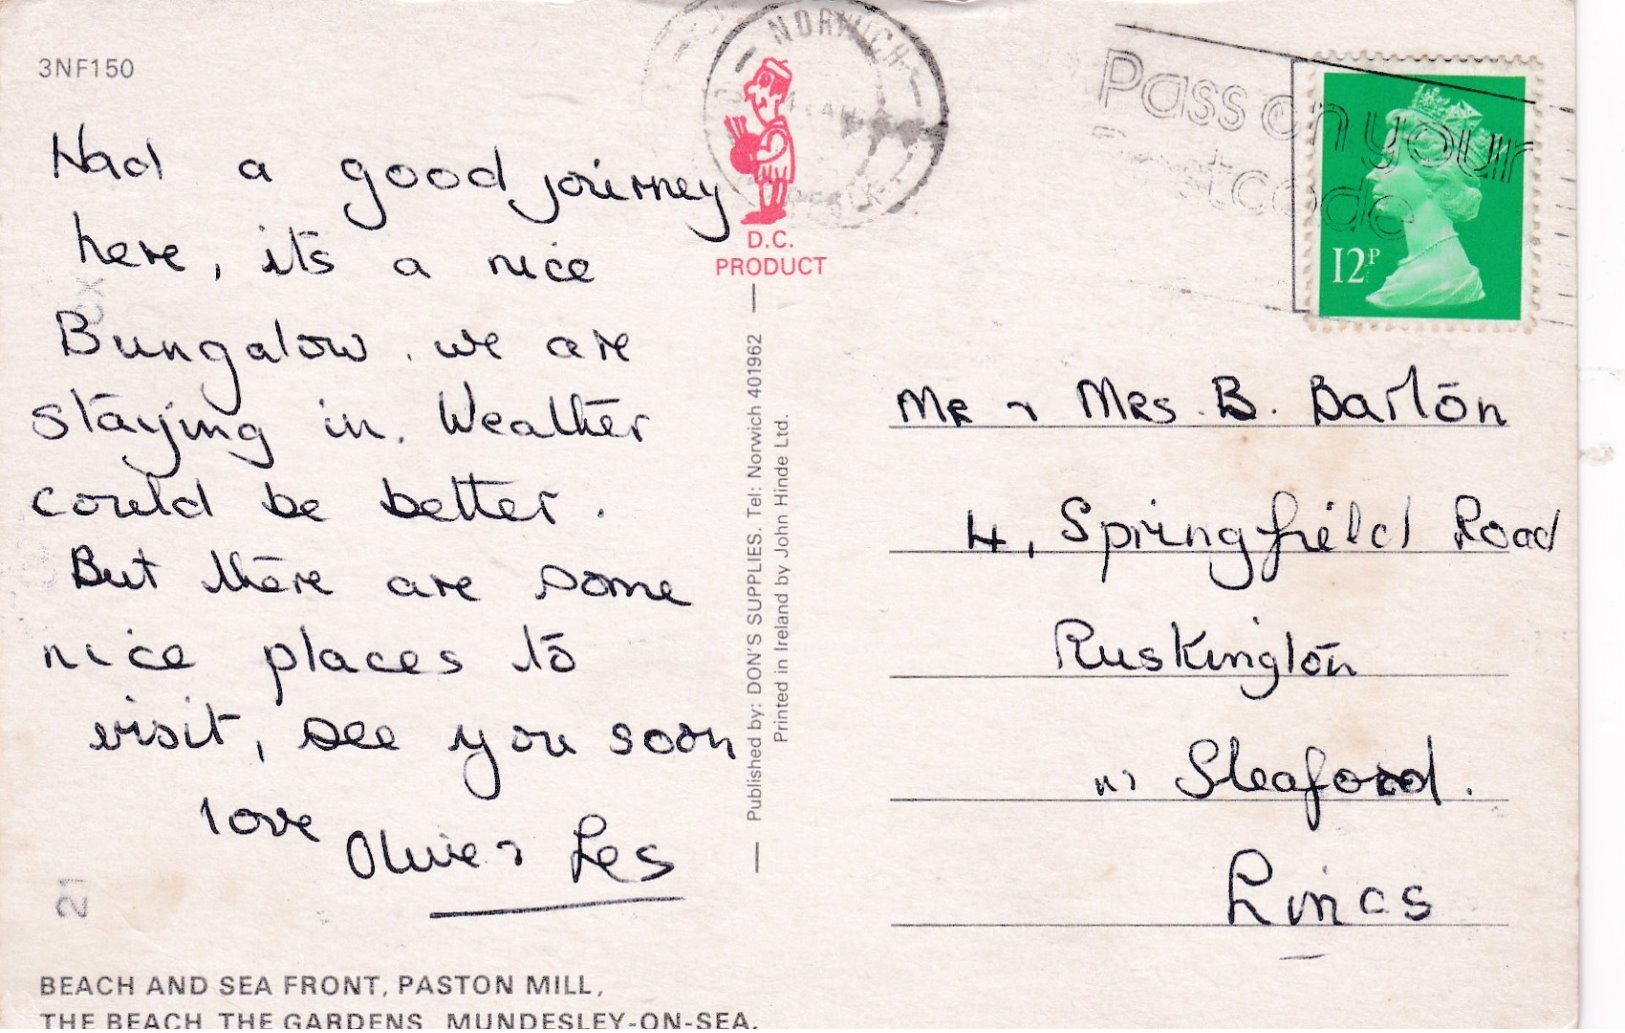 3NF150
Had a good journey
here, its a nice
Bungalow. we are
staying in. Weather
could be better.
But there are some
nice places to
visit, see you soon
love
Olive & Les
BEACH AND SEA FRONT, PASTON MILL,
THE BEACH, THE GARDENS, MUNDESLEY-ON-SEA.
D.C.
PRODUCT
Published by: DON'S SUPPLIES. Tel: Norwich 401962
Printed in Ireland by John Hinde Ltd.
NORWICH
Pass on your
Postcode
12P
Mr & Mrs. B. Barton
4, Springfield Road
Ruskington
nr Sleaford.
Lincs
21